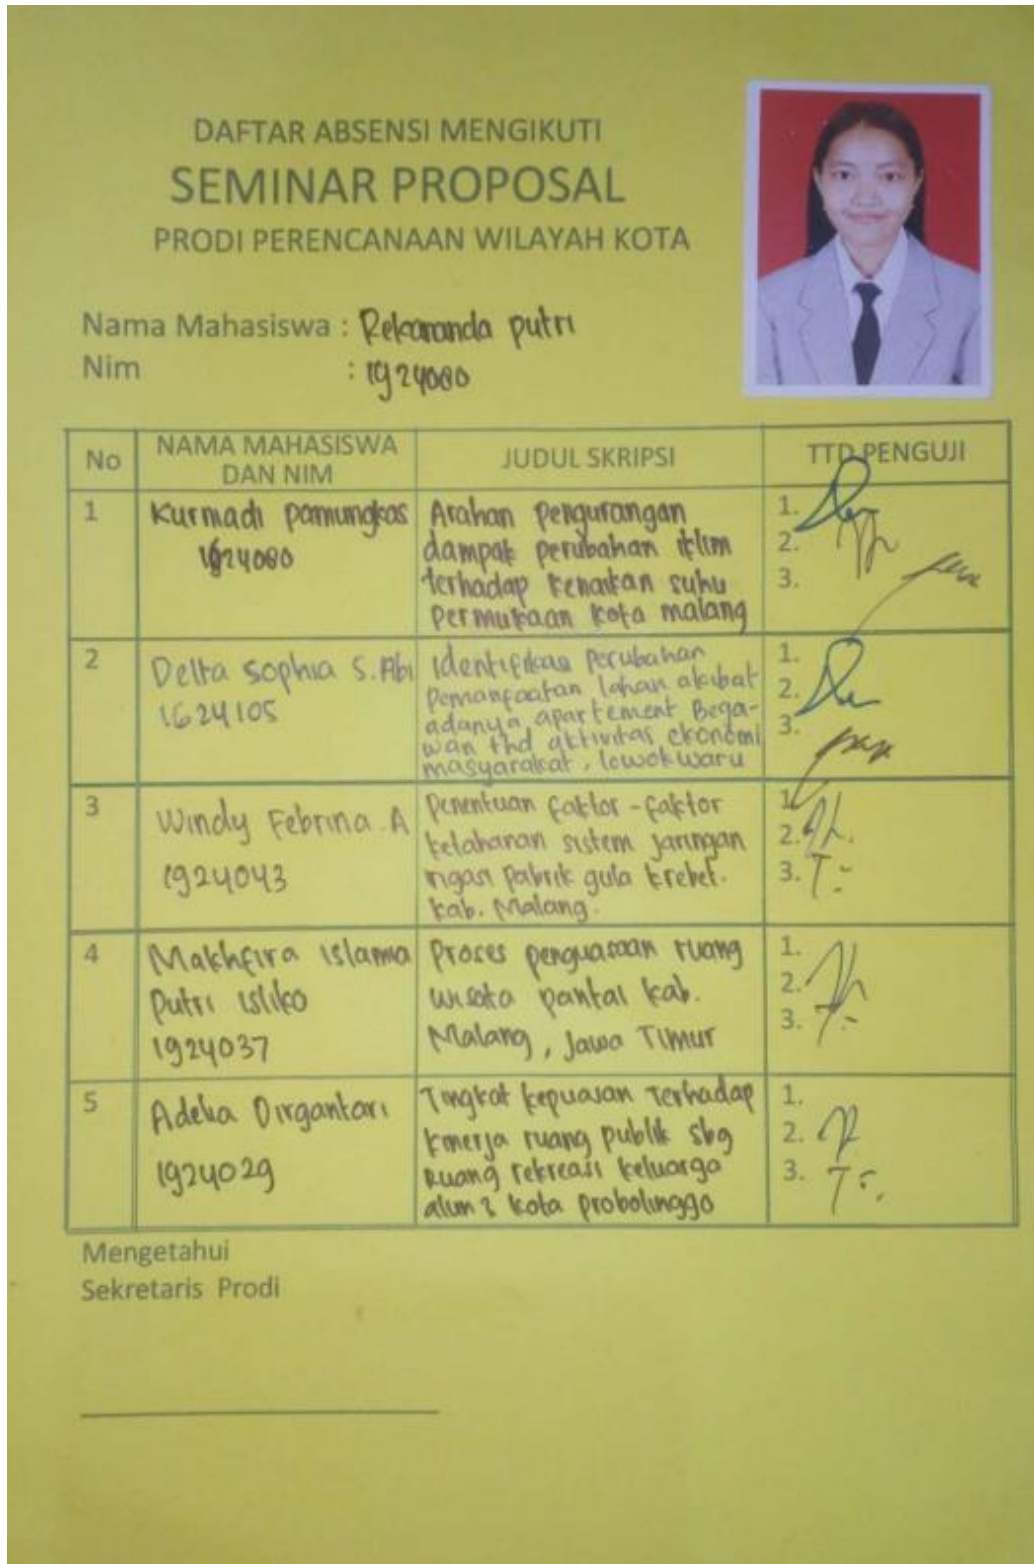 DAFTAR ABSENSI MENGIKUTI
SEMINAR PROPOSAL
PRODI PERENCANAAN WILAYAH KOTA
Nama Mahasiswa : Rekananda putri
Nim : 1924080
No
NAMA MAHASISWA
DAN NIM
JUDUL SKRIPSI
TTD PENGUJI
1
Kurmadi pamungkas
1624080
Arahan pengurangan
dampak perubahan iklim
terhadap kenaikan suhu
permukaan kota malang
1.
2.
3.
2
Delta Sophia S. Abi
1624105
Identifikas perubahan
Pemanfaatan lahan akibat
adanya apartement Bega-
wan thd aktivitas ekonomi
masyarakat, lowokwaru
1.
2.
3.
3
Windy Febrina. A
1924043
Penentuan faktor - faktor
ketahanan sistem jaringan
irigasi pabrik gula krebet.
kab. Malang.
1.
2.
3.
4
Makhfira Islama
Putri Isliko
1924037
Proses penguasaan ruang
wisata pantai kab.
Malang, Jawa Timur
1.
2.
3.
5
Adelia Dirgantari
1924029
Tingkat kepuasan Terhadap
kinerja ruang publik sbg
Ruang rekreasi keluarga
alun2 kota probolinggo
1.
2.
3.
Mengetahui
Sekretaris Prodi